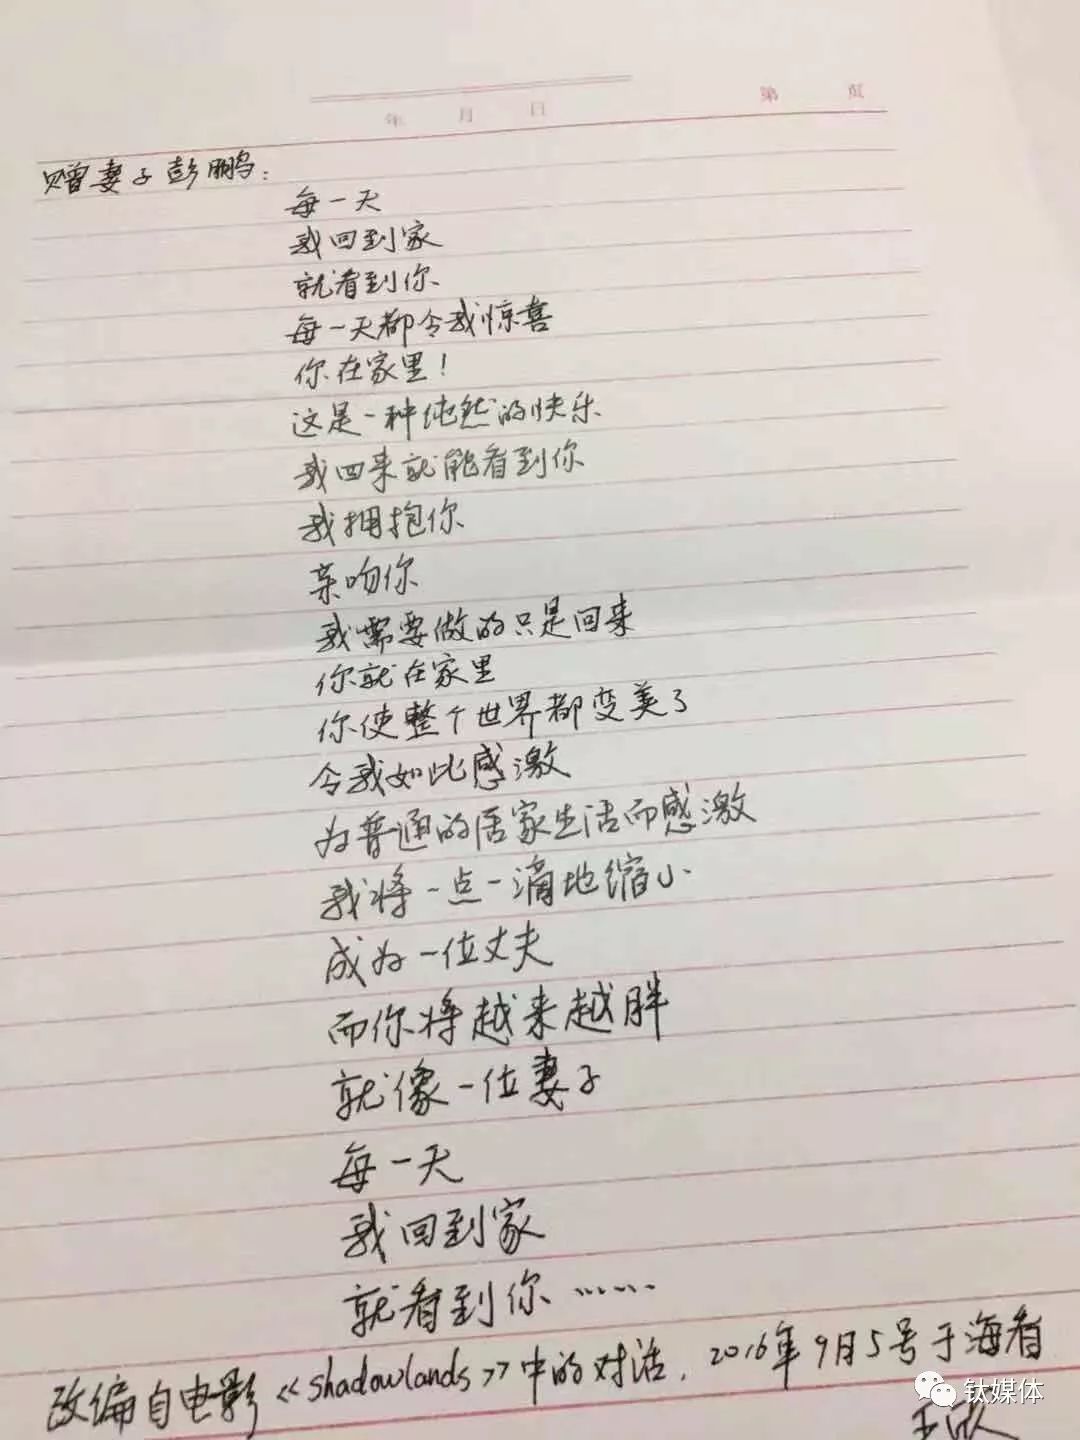 年 月 日 第 页
赠妻子彭鹏：
每一天
我回到家
就看到你
每一天都令我惊喜
你在家里！
这是一种纯然的快乐
我回来就能看到你
我拥抱你
亲吻你
我需要做的只是回来
你就在家里
你使整个世界都变美了
令我如此感激
为普通的居家生活而感激
我将一点一滴地缩小
成为一位丈夫
而你将越来越胖
就像一位妻子
每一天
我回到家
就看到你……
改编自电影《shadowlands》中的对话，2016年9月5号于海看
王欣
钛媒体